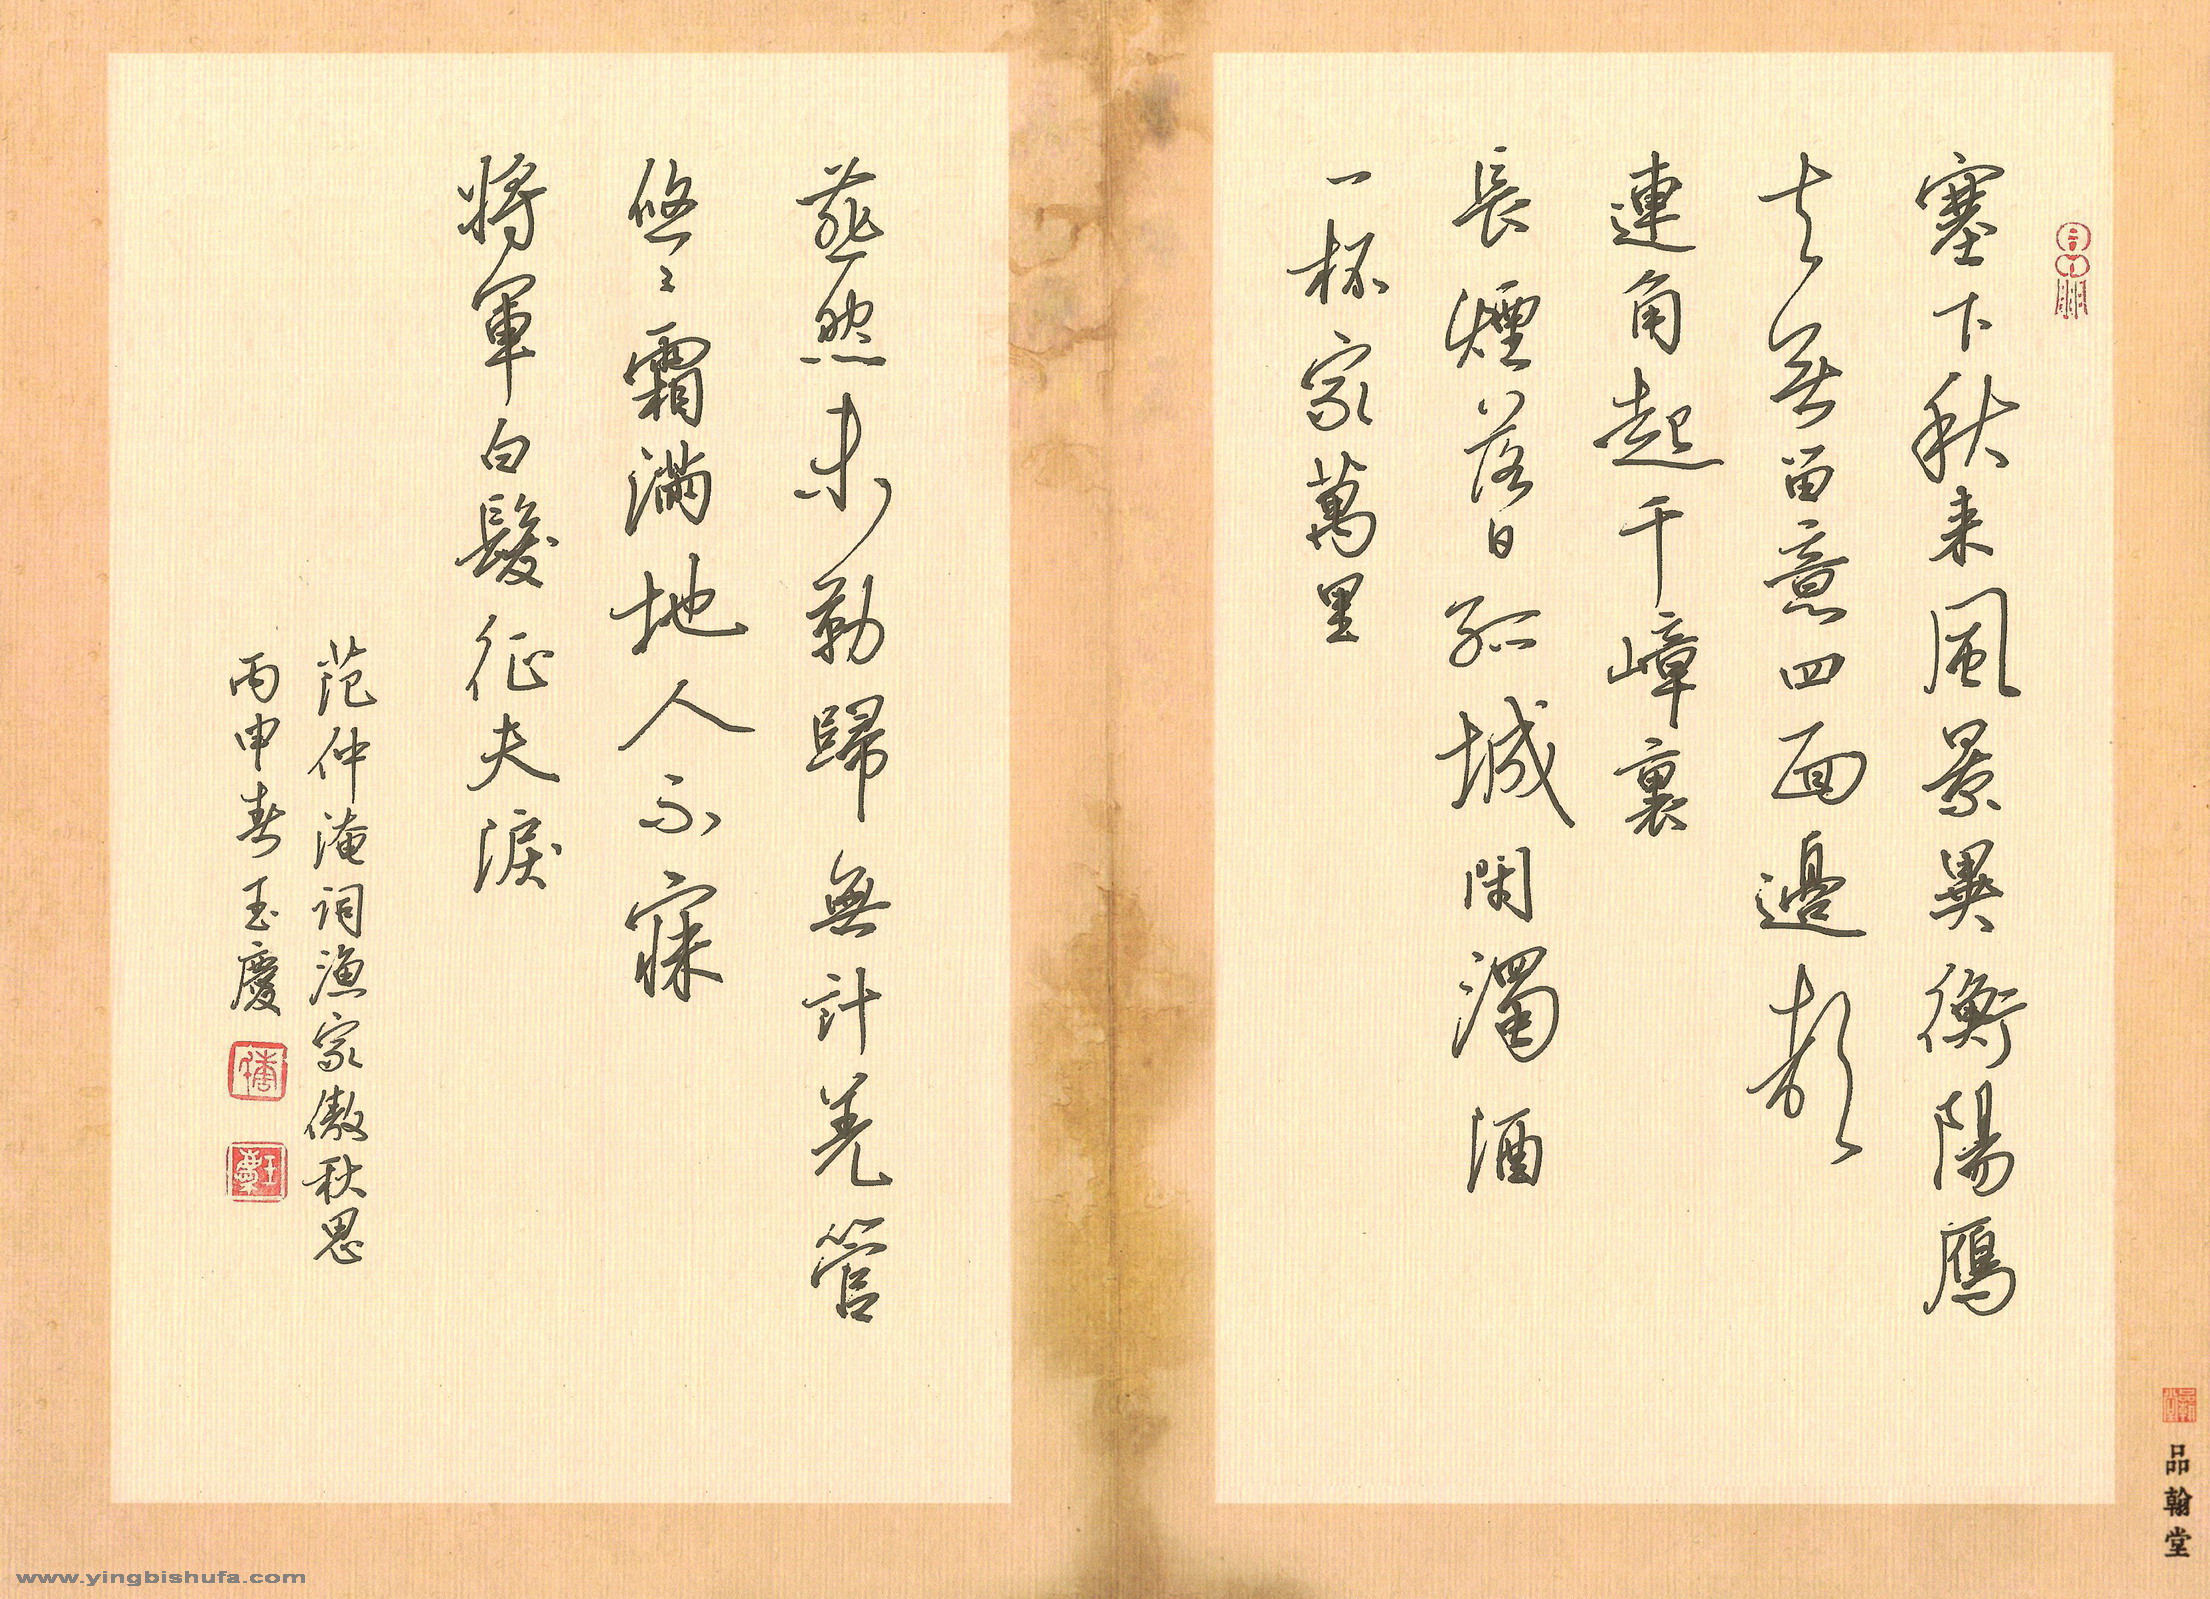 塞下秋来風景異衡陽鴈
去無留意四面邊聲
連角起千嶂裏
長煙落日孤城閉濁酒
一杯家萬里
燕然未勒歸無計羌管
悠〻霜滿地人不寐
將軍白髮征夫淚
范仲淹詞漁家傲秋思
丙申春玉慶
品翰堂
www.yingbishufa.com